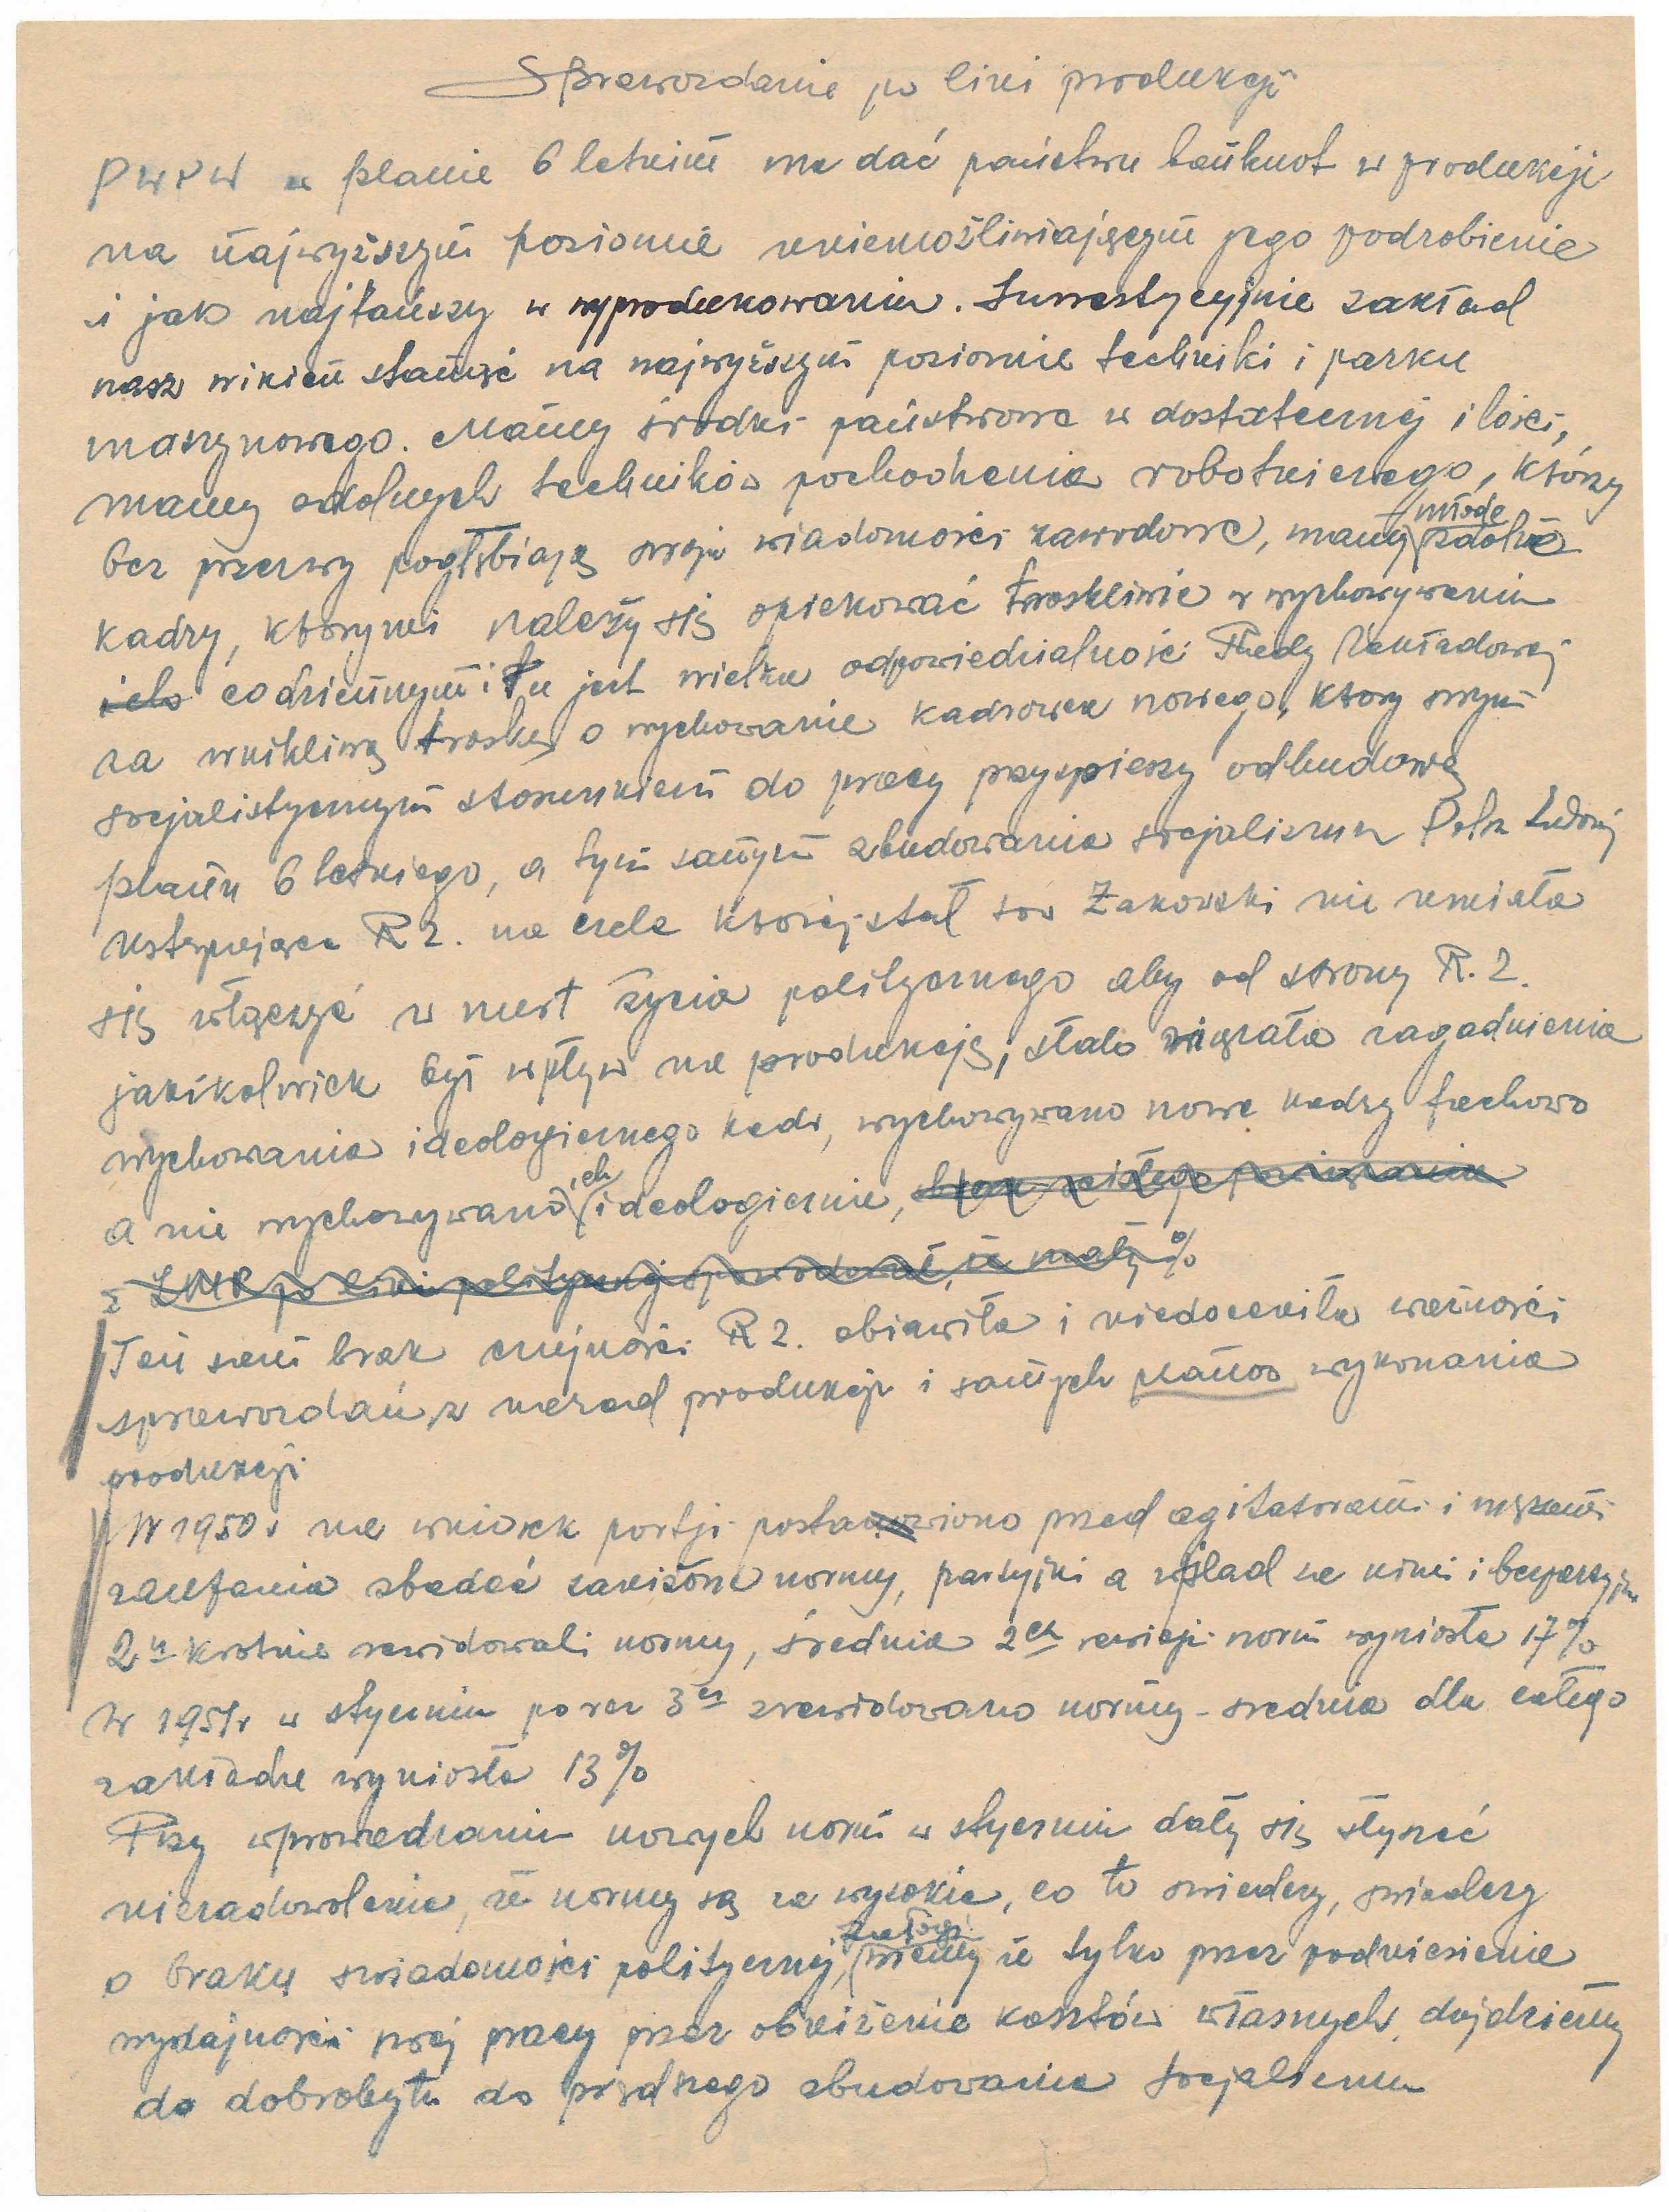 Sprawozdanie po lini produkcji
PWPW w planie 6 letnim ma dać państwu banknot w produkcji
na najwyższym poziomie uniemożliwiającym jego podrobienie
i jak najtańszy w wyprodukowaniu. Inwestycyjnie zakład
nasz winien stanąć na najwyższym poziomie techniki i parku
maszynowego. Mamy środki państwowe w dostatecznej ilości,
mamy zdolnych techników pochodzenia robotniczego, którzy
bez przerwy pogłębiają swoje wiadomości zawodowe, mamy młode zdolne
kadry, którymi należy się opiekować troskliwie w wychowywaniu
codziennym i tu jest wielka odpowiedzialność Rady Zakładowej
za wnikliwą troskę o wychowanie kadrowca nowego, który swym
socjalistycznym stosunkiem do pracy przyspieszy odbudowę
planu 6 letniego, a tym samym zbudowania socjalizmu Polsce Ludowej
Ustępująca R Z. na czele której stał tow Żakowski nie umiała
się włączyć w nurt życia politycznego aby od strony R. Z.
jakikolwiek był wpływ na produkcję, stale zagadnienia
wychowania ideologicznego kadr, wychowywano nowe kadry fachowo
a nie wychowywano ich ideologicznie, brak ścisłego powiązania
z ZMP po lini politycznej spowodował, że mały %
Ten sam brak czujności R Z. objawiła i niedoceniła ważności
sprawozdań z narad produkcji i samych planów wykonania
produkcji
W 1950 r na wniosek partji postanowiono przed agitatorami i mężami
zaufania zbadać zaniżone normy, partyjni a wślad za nimi i bezpartyjni
2 u krotnie rewidowali normy, średnia 2ch rewizji norm wyniosła 17%
W 1951 r w styczniu po raz 3ci zrewidowano normy - srednia dla całego
zakładu wyniosła 13%
Przy wprowadzaniu nowych norm w styczniu dały się słyszeć
niezadowolenia, że normy są za wysokie, co to swiadczy, swiadczy
o braku swiadomości politycznej załogi, wiemy że tylko przez podniesienie
wydajności swej pracy przez obniżenie kosztów własnych dojdziemy
do dobrobytu do prędszego zbudowania socjalizmu